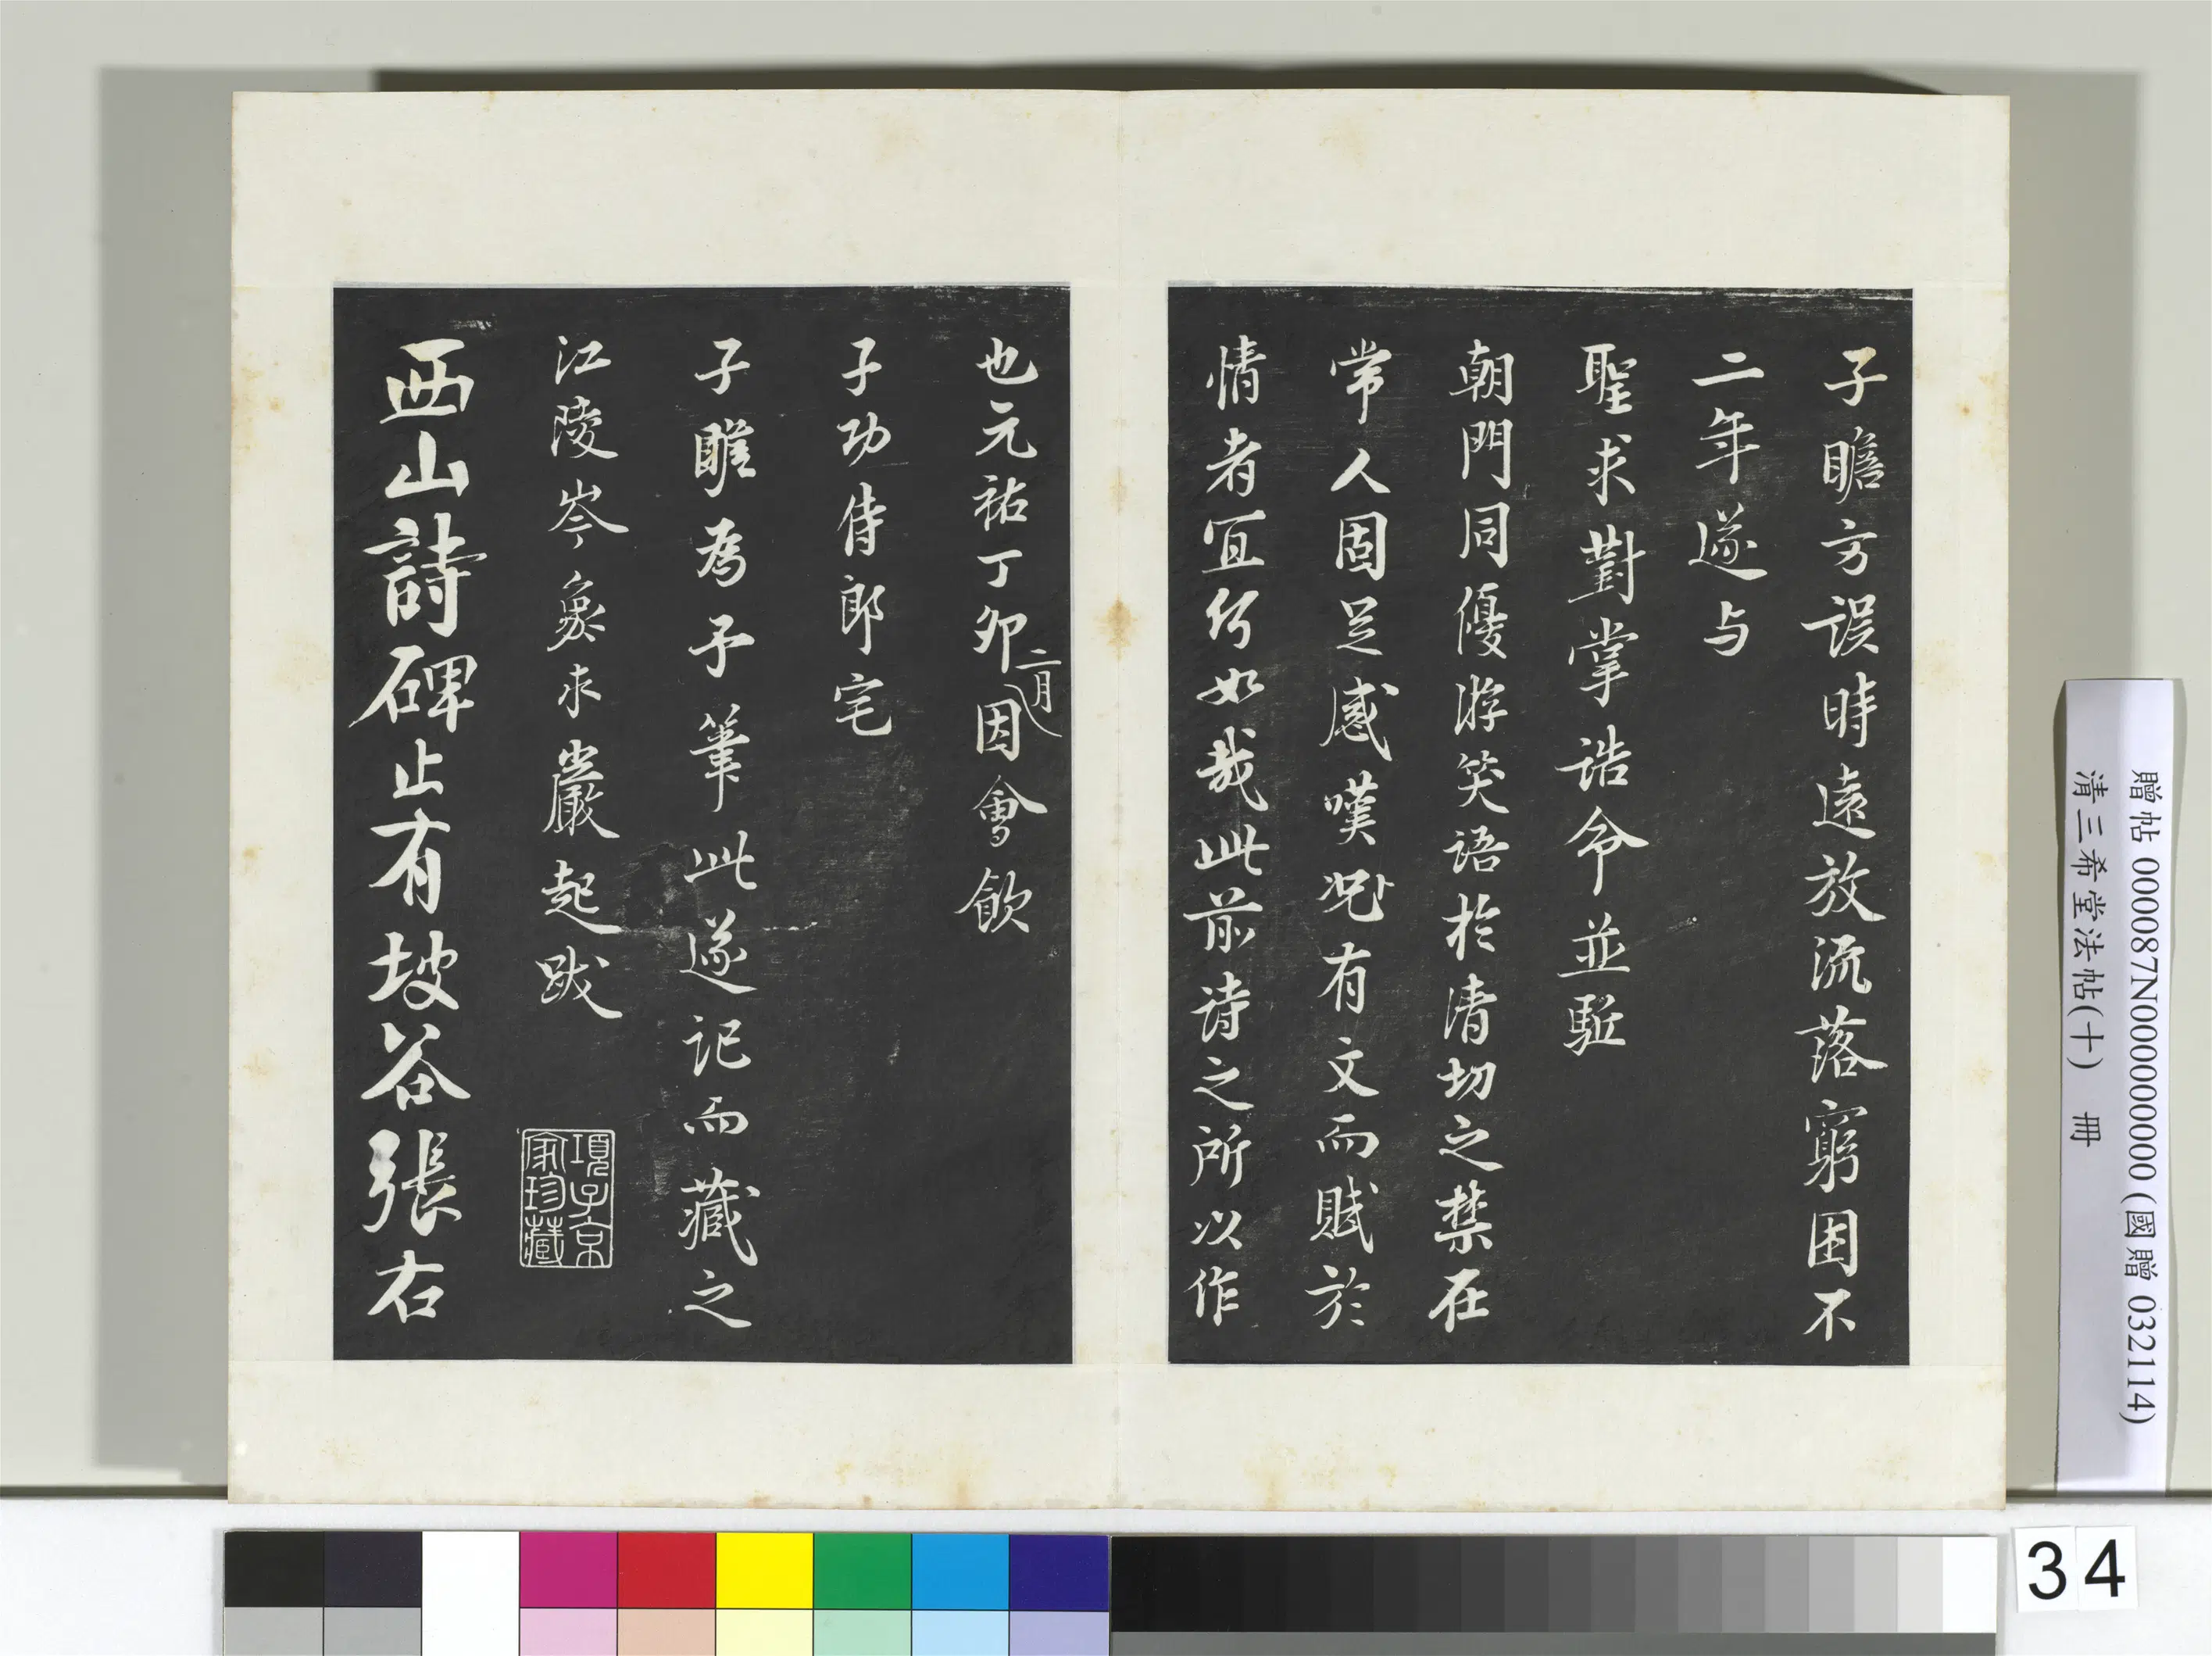 子瞻方誤時遠放流落窮困不
二年遂与
聖求對掌誥命並駈
朝門同優游笑語於清切之禁在
常人固足感嘆况有文而賦於
情者冝何如哉此前诗之所以作
也元祐丁卯二月因會飲
子功侍郎宅
子瞻為予筆此遂记而藏之
江陵岑象求巖起跋
項子京
家珍藏
西山詩碑止有坡谷張右
贈帖 000087N000000000 (國贈 032114)
清三希堂法帖(十) 冊
34